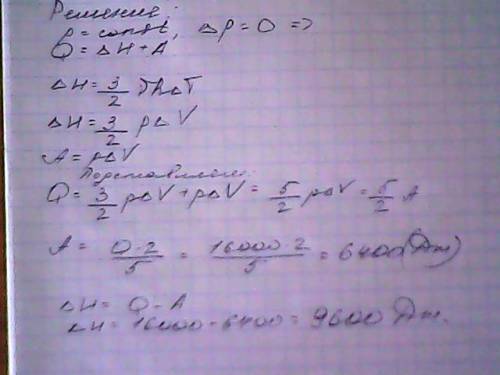 Решение:
p = const, Δp = 0 =>
Q = ΔИ + A
ΔИ = 3/2 νRΔT
ΔИ = 3/2 pΔV
A = pΔV
Подставляем:
Q = 3/2 pΔV + pΔV = 5/2 pΔV = 5/2 A
A = Q·2/5 = 16000·2/5 = 6400 (Дж)
ΔИ = Q - A
ΔИ = 16000 - 6400 = 9600 Дж.